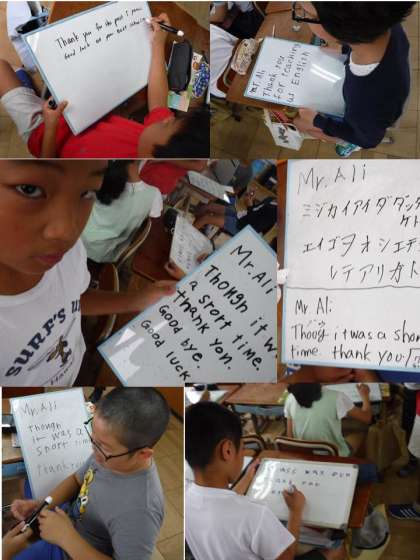 Thank you for the past 5 years
Good luck at your next school
Mr. Ali
Thank you
for teaching
us English
Mr. Ali
Though it w
a srort time.
thank you.
Good bye.
Good luck.
SURF'S
Mr. Ali
ミジカイアイダダッタ
ケト
エイゴヲオシエテ
レテアリガト
Mr Ali:
Though it was a shor
time. thank you!
Mr. Ali
though
it was a
short time
thank